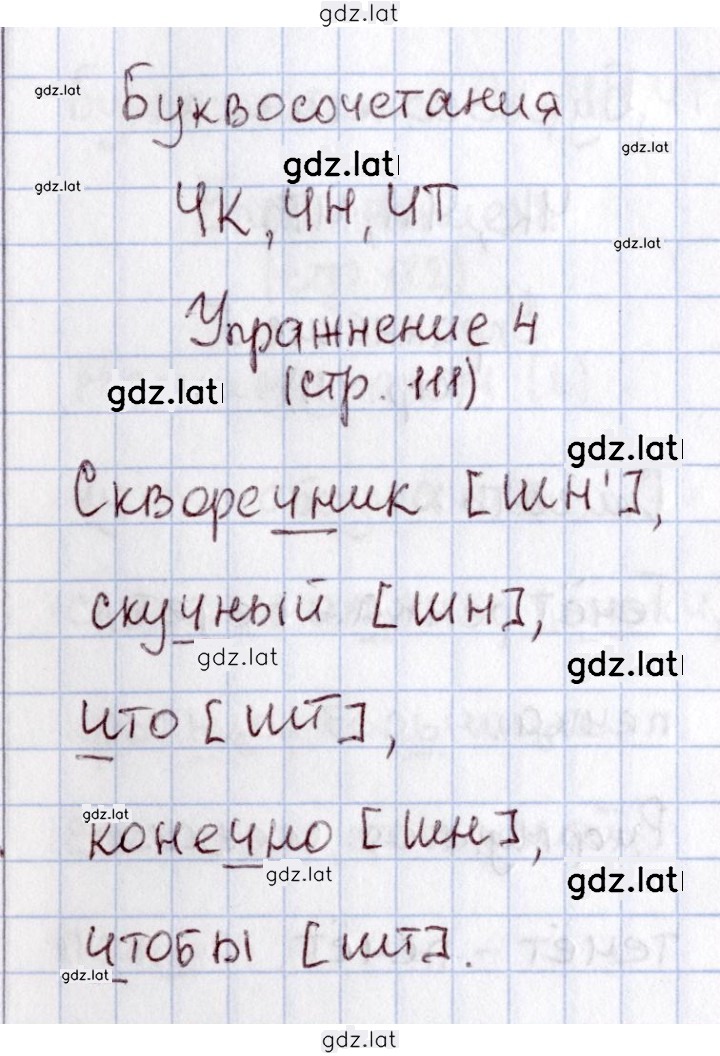 gdz.lat
gdz.lat
Буквосочетания
gdz.lat
gdz.lat
gdz.lat
ЧК, ЧН, ЧТ
gdz.lat
Упражнение 4
gdz.lat
(стр. 111)
gdz.lat
Скворечник [шн'],
скучный [шн],
gdz.lat
gdz.lat
что [шт],
gdz.lat
конечно [шн],
gdz.lat
gdz.lat
чтобы [шт].
gdz.lat
gdz.lat